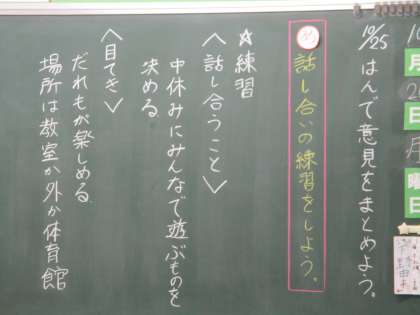 10/25 はんで意見をまとめよう。
話し合いの練習をしよう。
☆練習
〈話し合うこと〉
中休みにみんなで遊ぶものを
決める
〈目てき〉
だれもが楽しめる
場所は教室か外か体育館
月
日
曜
日